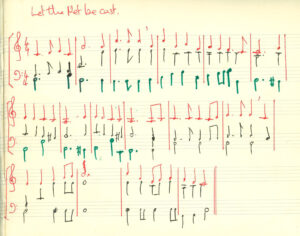 Let the be cast.